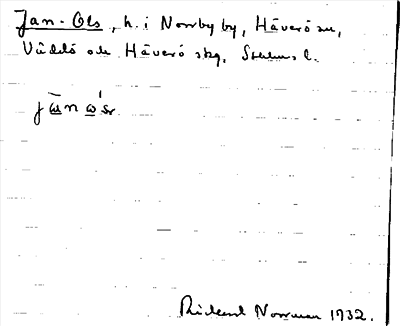 Jan-Ols, h. i Norrby by, Häverö sn,
Väddö och Häverö skg, Sthlms l.
Rickard Norrman 1932.